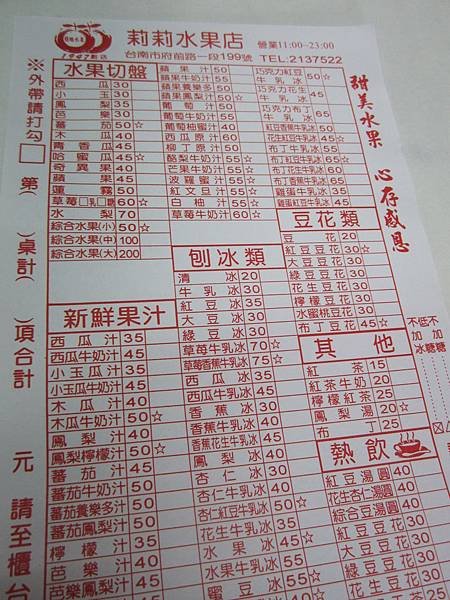 1947創店
莉莉水果店
營業11:00~23:00
台南市府前路一段199號 TEL:2137522
甜美水果 心存感恩
※外帶請打勾□
第( )桌計( )項合計 元 請至櫃台
水果切盤
西瓜 30
小玉 30
鳳梨 35
芭樂 30
蕃茄 50☆
木瓜 40
青香瓜 45
哈蜜瓜 45☆
奇異果 40
蘋果 45
蓮霧 50
草莓□乳□糖 60☆
水梨 70
綜合水果(小) 50☆
綜合水果(中) 100
綜合水果(大) 200
新鮮果汁
西瓜汁 35
西瓜牛奶汁 45
小玉瓜汁 35
小玉瓜牛奶汁 45
木瓜汁 40
木瓜牛奶汁 50☆
鳳梨汁 40
鳳梨檸檬汁 50☆
蕃茄汁 45
蕃茄牛奶汁 50
蕃茄養樂多汁 50
蕃茄鳳梨汁 50
檸檬汁 35
芭樂汁 40
芭樂鳳梨汁 45
蘋果汁 50
蘋果牛奶汁 55
蘋果養樂多 50
蘋果鳳梨汁 50☆
葡萄汁 50
葡萄牛奶汁 55
葡萄柚蜜汁 40
西瓜原汁 60
柳丁原汁 50
酪梨牛奶汁 55☆
芒果牛奶汁 55☆
波蘿蜜汁 55☆
紅文旦汁 55☆
白柚汁 55☆
草莓牛奶汁 60☆
刨冰類
清冰 20
牛乳冰 30
紅豆冰 35
大豆冰 30
綠豆冰 30
草莓牛乳冰 70☆
草莓香蕉牛乳冰 75☆
西瓜冰 35
西瓜牛乳冰 45
香蕉冰 30
香蕉牛乳冰 40
香蕉花生牛乳冰 45
鳳梨冰 40
杏仁冰 30
杏仁牛乳冰 40
杏仁紅豆牛乳冰 50☆
花生牛乳冰 35
水果冰 45
水果牛乳冰 55☆
巧克力紅豆牛乳冰 50☆
巧克力花生牛乳冰 45
巧克力布丁牛乳冰 65
豆花類
豆花 20
紅豆豆花 30☆
大豆豆花 30
綠豆豆花 30
花生豆花 30
檸檬豆花 30
水蜜桃豆花 40
布丁豆花 45☆
其他
紅茶 15
紅茶牛奶 20
檸檬紅茶 25
鳳梨湯 20☆
布丁 25
熱飲
紅豆湯圓 40
花生杏仁湯 40
綜合豆湯圓 40
紅豆豆花 30
大豆豆花 30
綠豆豆花 30
花生豆花 30
不加糖
低加糖
不加冰